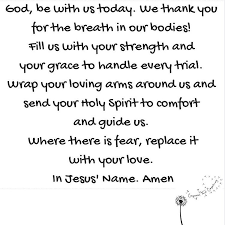 God, be with us today. We thank you
for the breath in our bodies!
Fill us with your strength and
your grace to handle every trial.
Wrap your loving arms around us and
send your Holy Spirit to comfort
and guide us.
Where there is fear, replace it
with your love.
In Jesus' Name. Amen